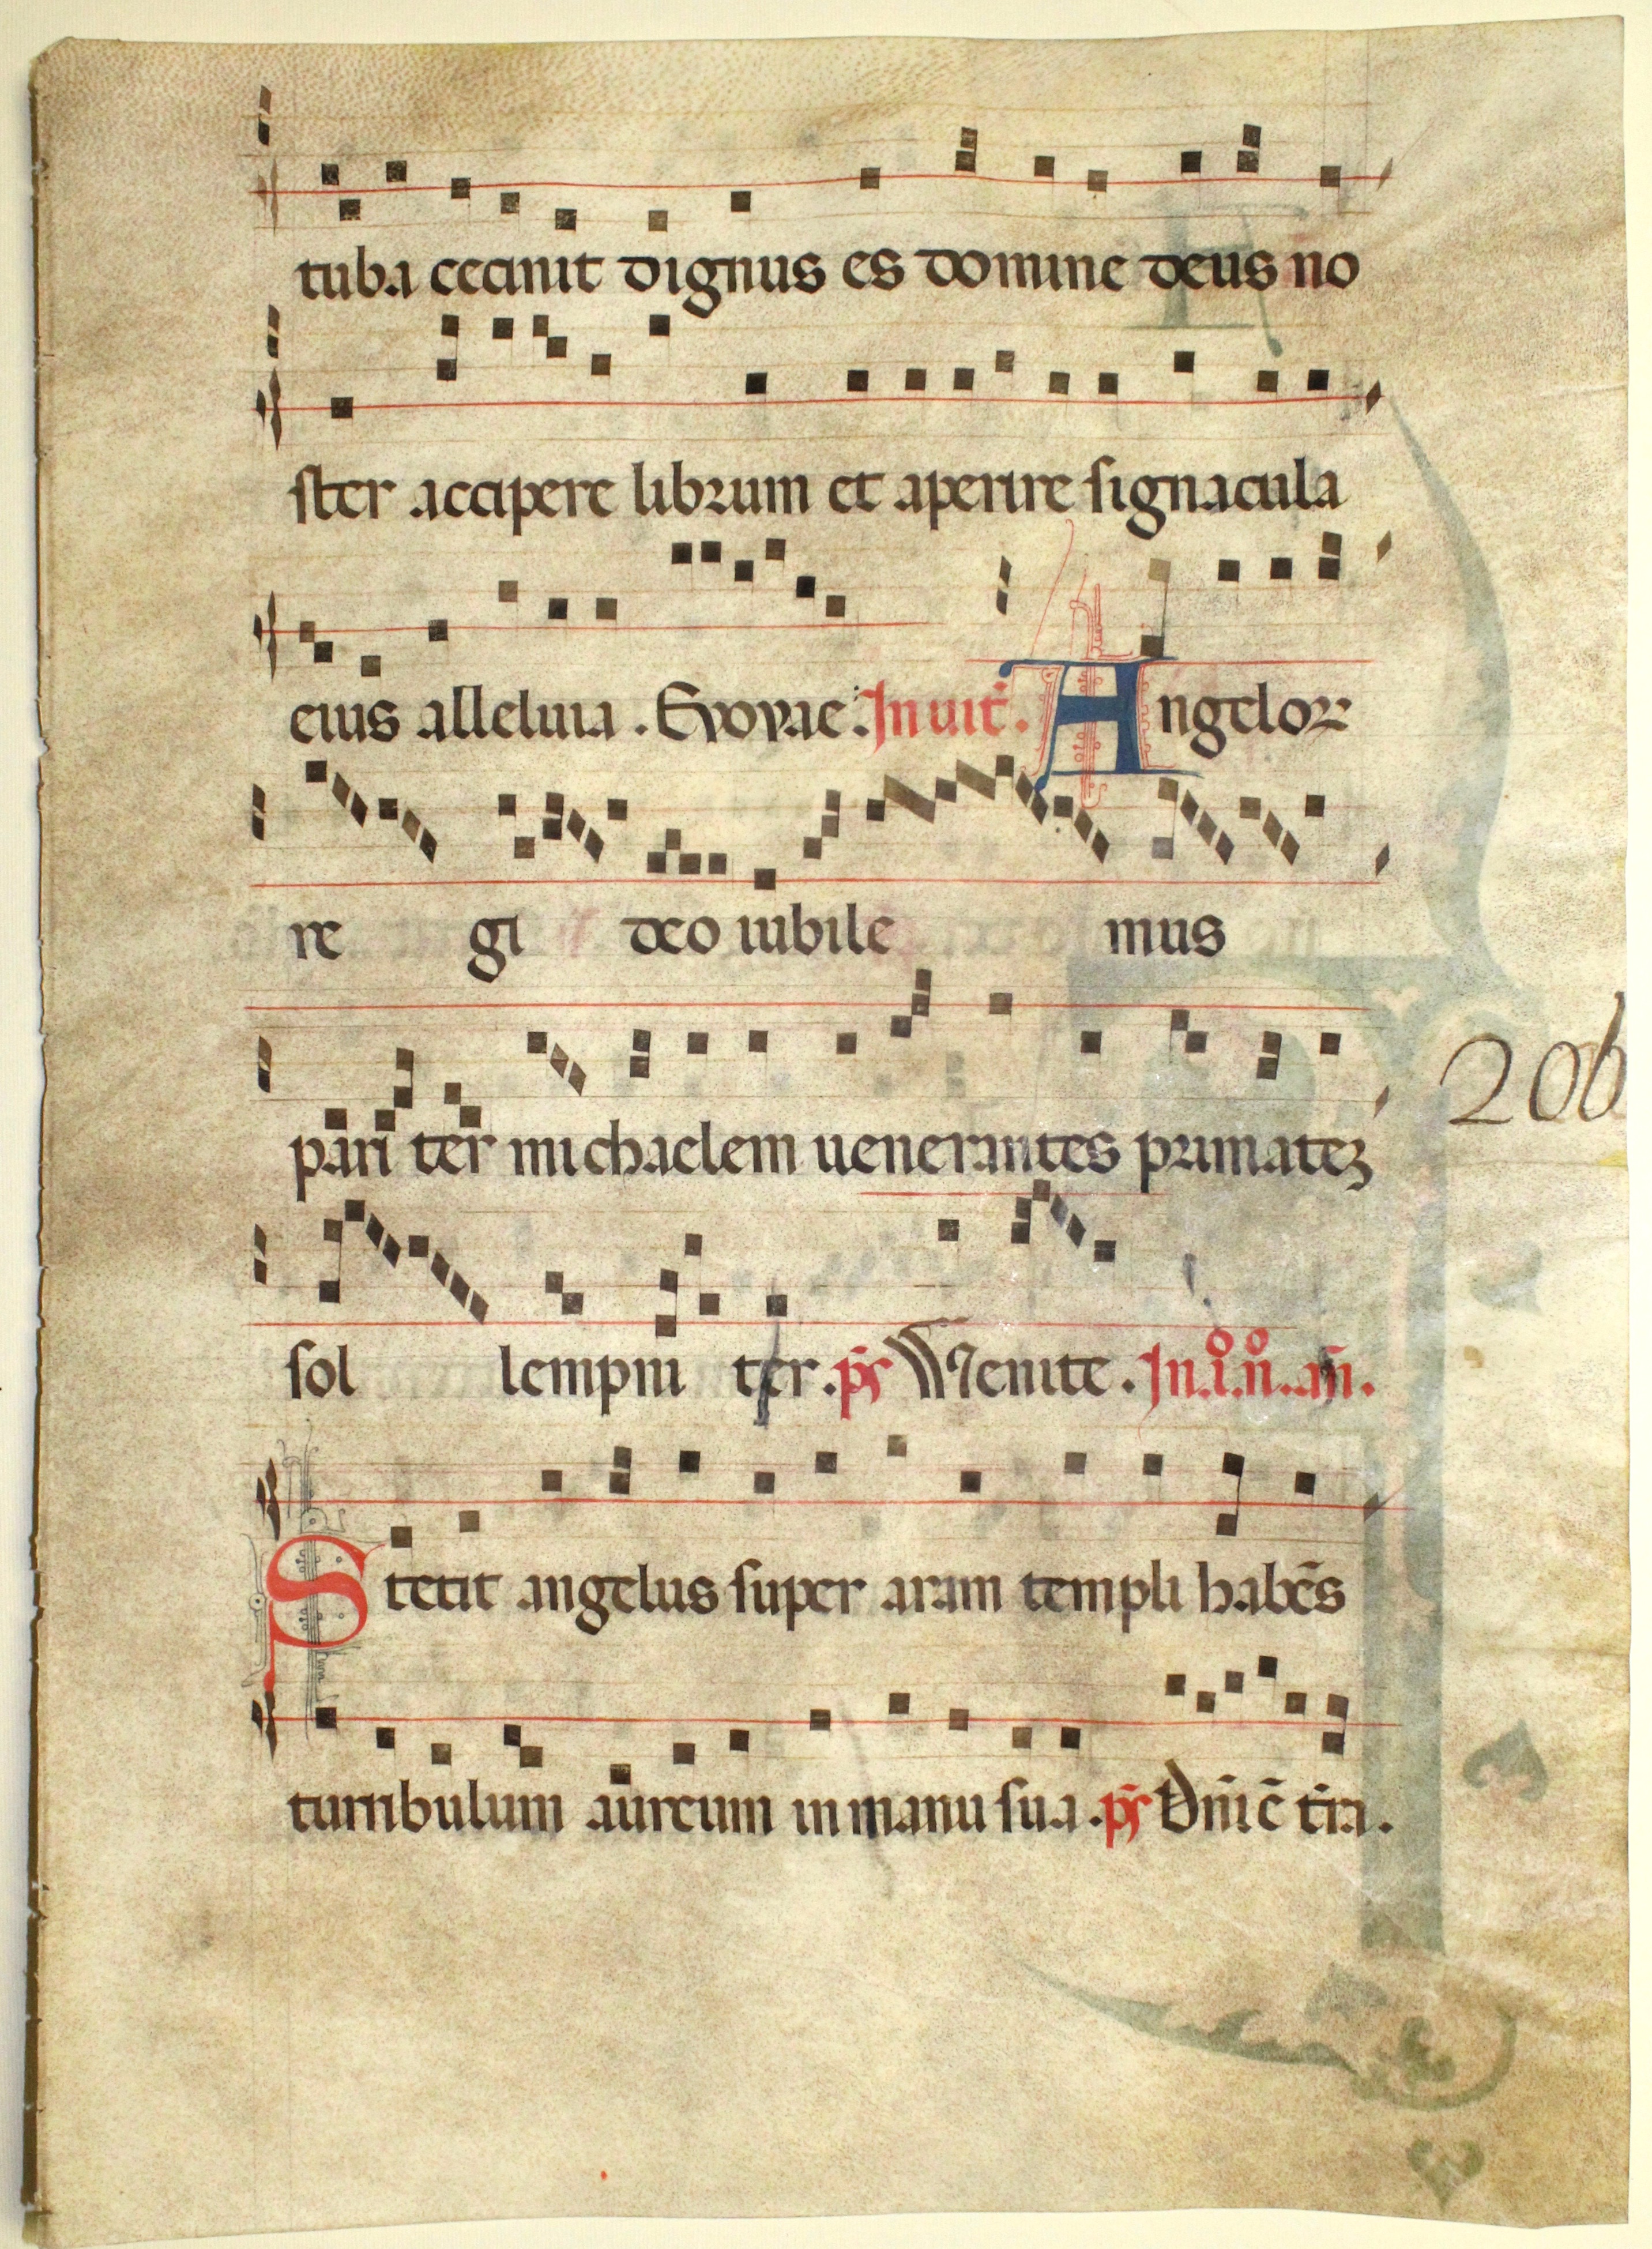 tuba cecinit dignus es domine deus no
ster accipere librum et aperire signacula
eius alleluia . Evovae . Inuit̄ . Angeloꝝ
re gi deo iubile mus
pari ter michaelem uenerantes primateʒ
sol lempni ter . p̄s Venite . In .i̊. n̊. an̄.
Stetit angelus super aram templi habēs
turribulum aureum in manu sua . p̄s Dn̄i ē t̄ra .
206